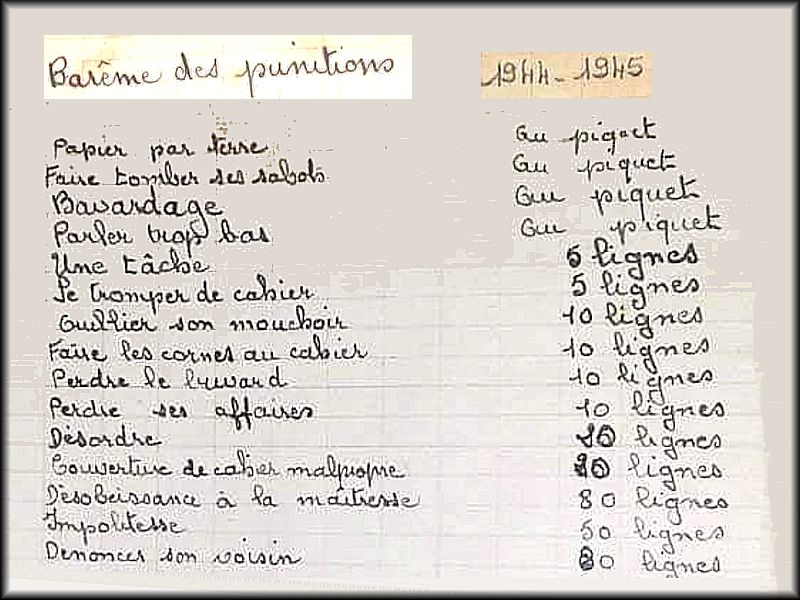 Barême des punitions 1944-1945
Papier par terre Au piquet
Faire tomber ses sabots Au piquet
Bavardage Au piquet
Parler trop bas Au piquet
Une tâche 5 lignes
Se tromper de cahier 5 lignes
Oublier son mouchoir 10 lignes
Faire les cornes au cahier 10 lignes
Perdre le buvard 10 lignes
Perdre ses affaires 10 lignes
Désordre lignes
Couverture de cahier malpropre lignes
Désobeissance à la maitresse 80 lignes
Impolitesse 50 lignes
Denoncer son voisin lignes